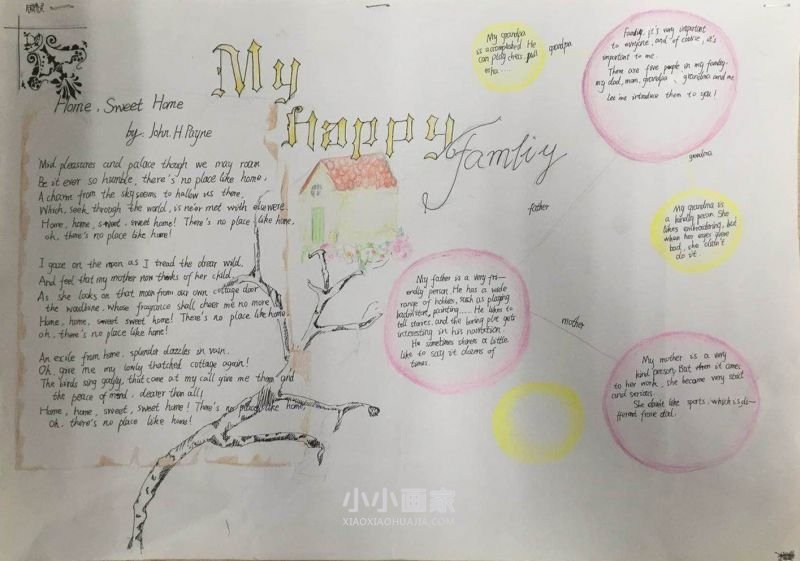 My
happy
Family
Home, Sweet Home
by John.H.Payne
Mid pleasures and palace though we may roam
Be it ever so humble, there's no place like home.
A charm from the sky seems to hallow us there,
Which, seek through the world, is ne'er met with elsewere.
Home, home, sweet, sweet home! There's no place like home,
oh, there's no place like home!
I gaze on the moon as I tread the drear wild,
And feel that my mother now thinks of her child,
As she looks on that moon from our own cottage door
the woodbine, whose fragrance shall cheer me no more
Home, home, sweet, sweet home! There's no place like home
oh, there's no place like home!
An exile from home, splendor dazzles in vain.
Oh, give me my lowly thatched cottage again!
The birds sing gayly, that come at my call give me them and
the peace of mind, dearer than all!
Home, home, sweet, sweet home! There's no place like home,
Oh, there's no place like home!
My grandpa
is accomplished. He
can play chess, pull
erhu......
grandpa
Family, it's very important
to everyone, and of course, it's
important to me.
There are five people in my family.
my dad, mom, grandpa, grandma and me
Let me introduce them to you!
grandma
My grandma is
a kindly person. She
likes embroidering, but
when her eyes
bad, she didn't
do it.
father
My father is a very fri-
endly person. He has a wide
range of hobbies, such as playing
badminton, painting...... He likes to
tell stories, and the boring plot gets
interesting in his narration.
He sometimes a little
like to say it of
times.
mother
My mother is a very
kind person, But when it comes
to her work, she became very strict
and serious.
She like sports, which is di-
fferent from dad.
小小画家
XIAOXIAOHUAJIA.COM